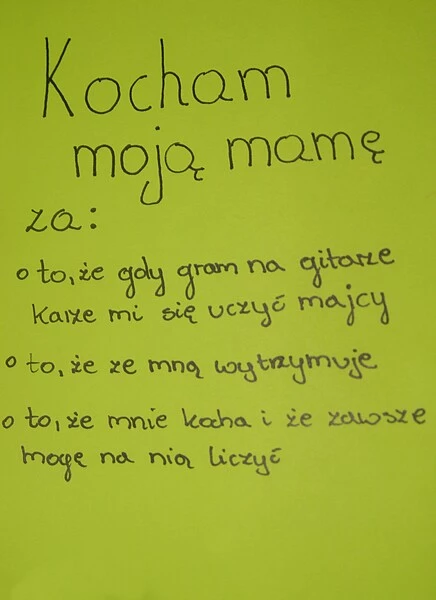 Kocham
moją mamę
za:
to, że gdy gram na gitarze
karze mi się uczyć majcy
to, że ze mną wytrzymuje
to, że mnie kocha i że zawsze
mogę na nią liczyć